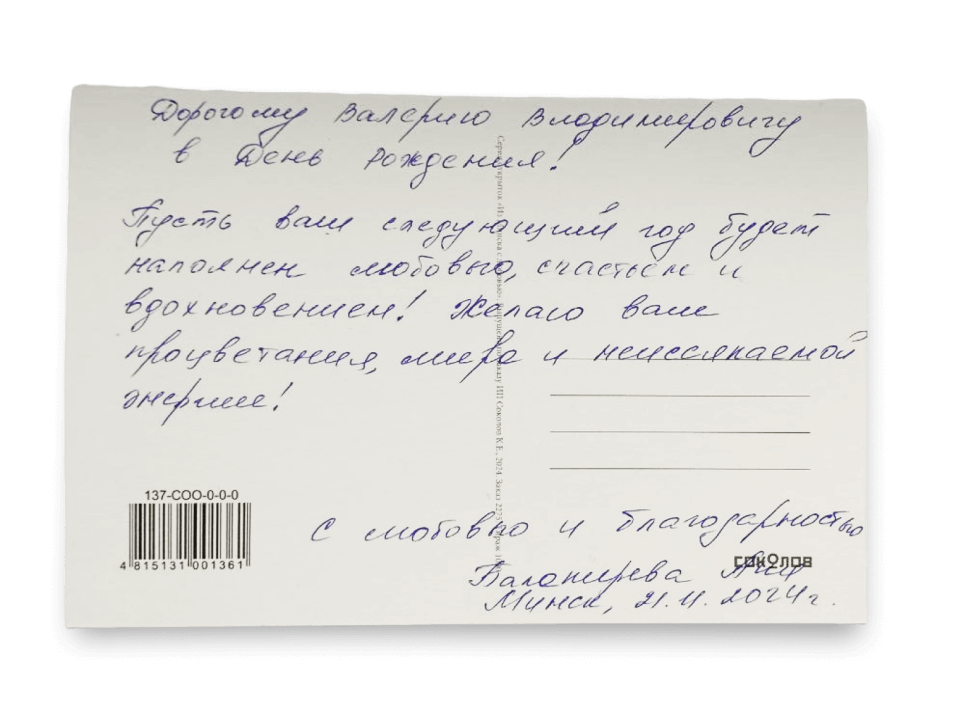 Дорогому Валерию Владимировичу
в День рождения!
Пусть ваш следующий год будет
наполнен любовью, счастьем и
вдохновением! Желаю вам
процветания, мира и неиссякаемой
энергии!
137-СОО-0-0-0
4 815131 001361
С любовью и благодарностью
соколов
Минск, 21.11.2024г.
Серия открыток
ИП Соколов К.Е., 2024. Заказ